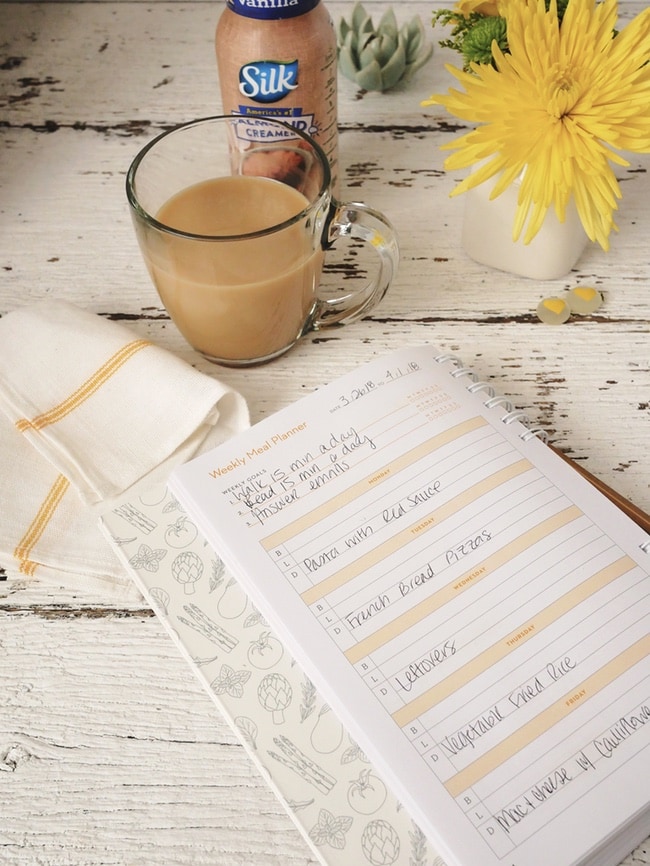 Vanilla
Silk
America's #1
ALMOND
CREAMER
DATE 3.26.18 TO 4.1.18
Weekly Meal Planner
WEEKLY GOALS
1. Walk 15 min a day
2. Read 15 min a day
3. Answer emails
MONDAY
B
L
D Pasta with Red Sauce
TUESDAY
B
L
D French Bread Pizzas
WEDNESDAY
B
L
D Leftovers
THURSDAY
B
L
D Vegetable Fried Rice
FRIDAY
B
L
D Mac + cheese w/ Cauliflower